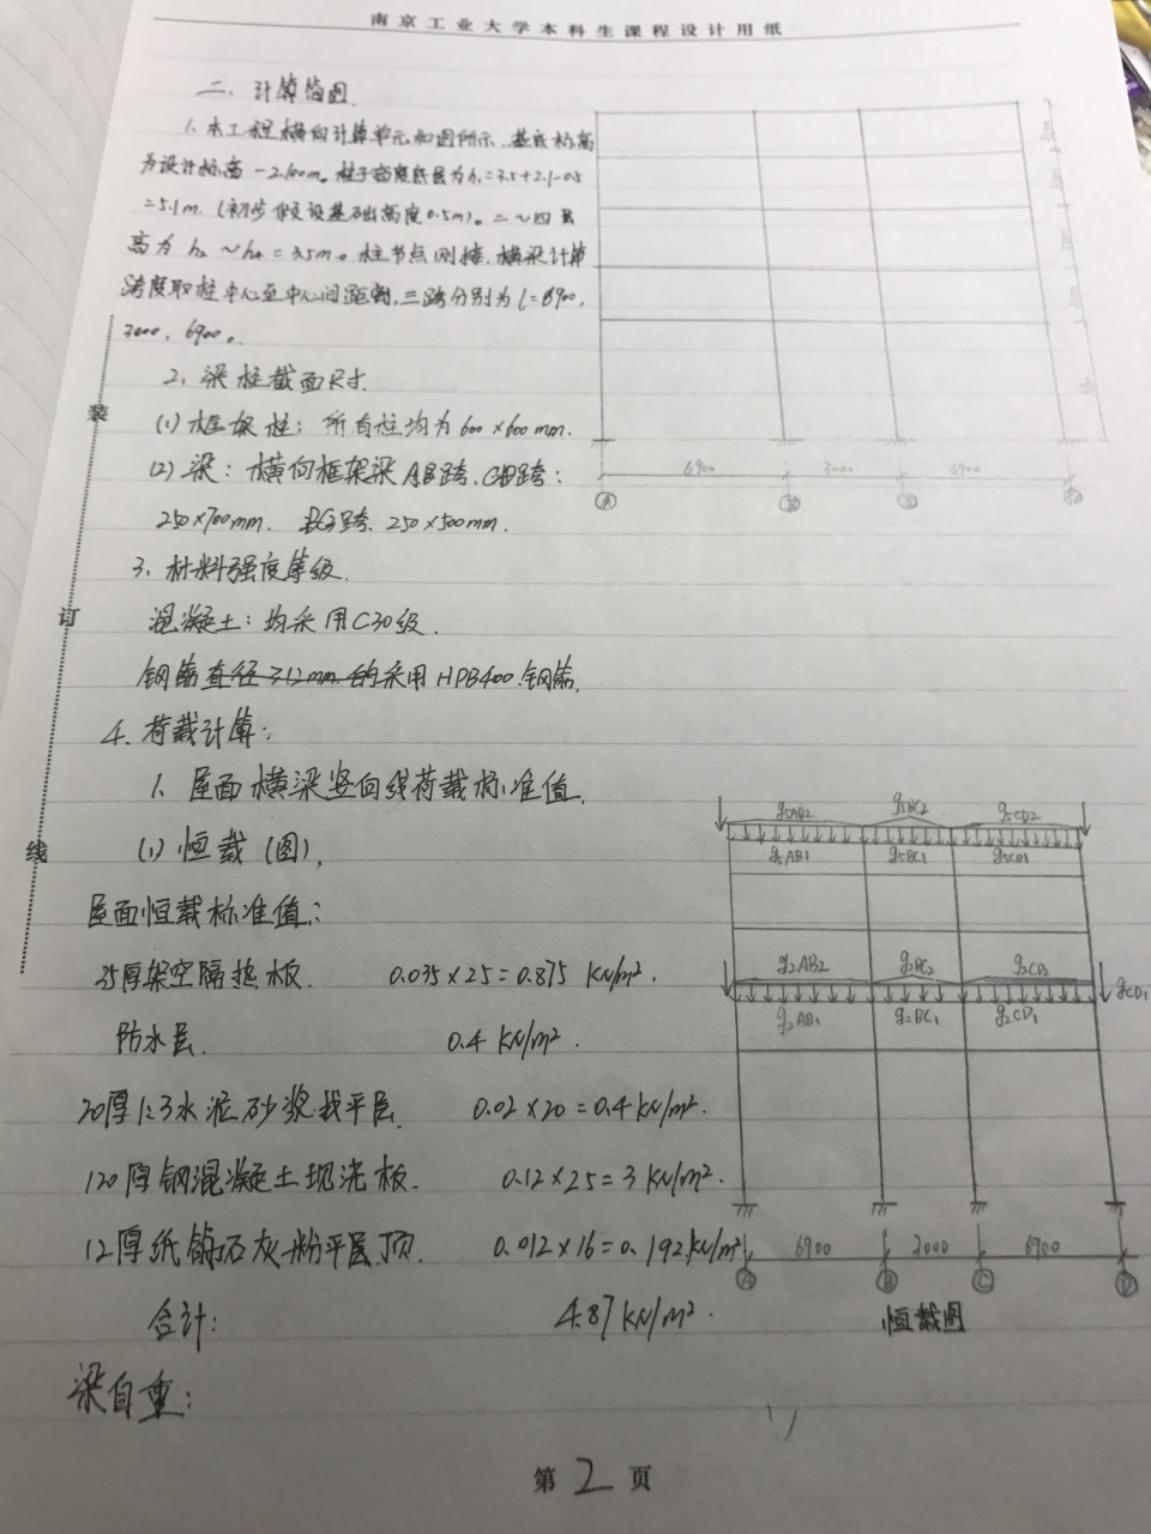 南京工业大学本科生课程设计用纸
二、计算简图.
1、本工程横向计算单元如图所示,基底标高
为设计标高-2.100m。柱子高度底层为h₁=3.5+2.1-0.5
=5.1m.(初步假设基础高度0.5m)。二~四层
高为h₂~h₄=3.5m。柱节点刚接,横梁计算
跨度取柱中心至中心间距离,三跨分别为l=6900,
3000,6900。
6900 3000 6900
A
2、梁柱截面尺寸.
(1)框架柱:所有柱均为600×600mm.
(2)梁:横向框架梁AB跨、CD跨:
250×700mm. BC跨、250×500mm.
3、材料强度等级.
混凝土:均采用C30级.
钢筋直径≥12mm的采用HPB400钢筋.
4、荷载计算:
1、屋面横梁竖向线荷载标准值.
(1)恒载(图),
屋面恒载标准值:
35厚架空隔热板. 0.035×25=0.875 KN/m².
防水层. 0.4 KN/m².
20厚1:3水泥砂浆找平层. 0.02×20=0.4 KN/m².
120厚钢混凝土现浇板. 0.12×25=3 KN/m².
12厚纸筋石灰粉平层顶. 0.012×16=0.192 KN/m²
合计: 4.87 KN/m².
梁自重:
g5AB2 g5BC2 g5CD2
g5AB1 g5BC1 g5CD1
g2AB2 g2BC2
g2AB1 g2BC1 g2CD1
gCD1
6900 3000 6900
A B C D
恒载图
装
订
线
第2页